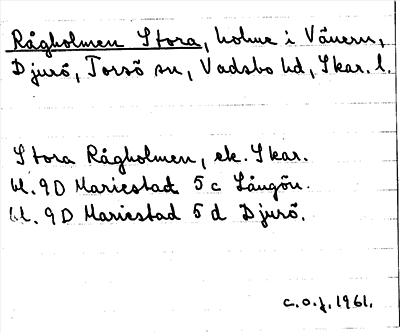 Rågholmen Stora, holme i Vänern,
Djurö, Torsö sn, Vadsbo hd, Skar. l.
Stora Rågholmen, ek. Skar.
bl. 9D Mariestad 5 c Långön.
bl. 9D Mariestad 5 d Djurö.
c.o.f. 1961.